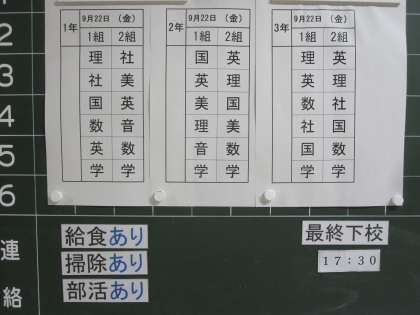 1年 9月22日 (金) 2年 9月22日 (金) 3年 9月22日 (金)
1組 2組 1組 2組 1組 2組
2 理 社 国 英 理 英
3 社 美 英 理 英 理
国 英 美 国 数 社
4 数 音 理 美 社 国
5 英 数 音 数 国 数
6 学 学 学 学 学 学
連絡
給食あり
掃除あり
部活あり
最終下校
17:30